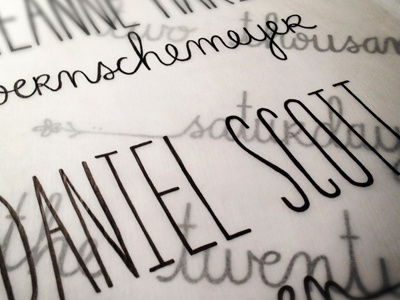 EANNE MAR
two thousan
oernschemeyer
saturday
DANIEL SCOTT
the twenty